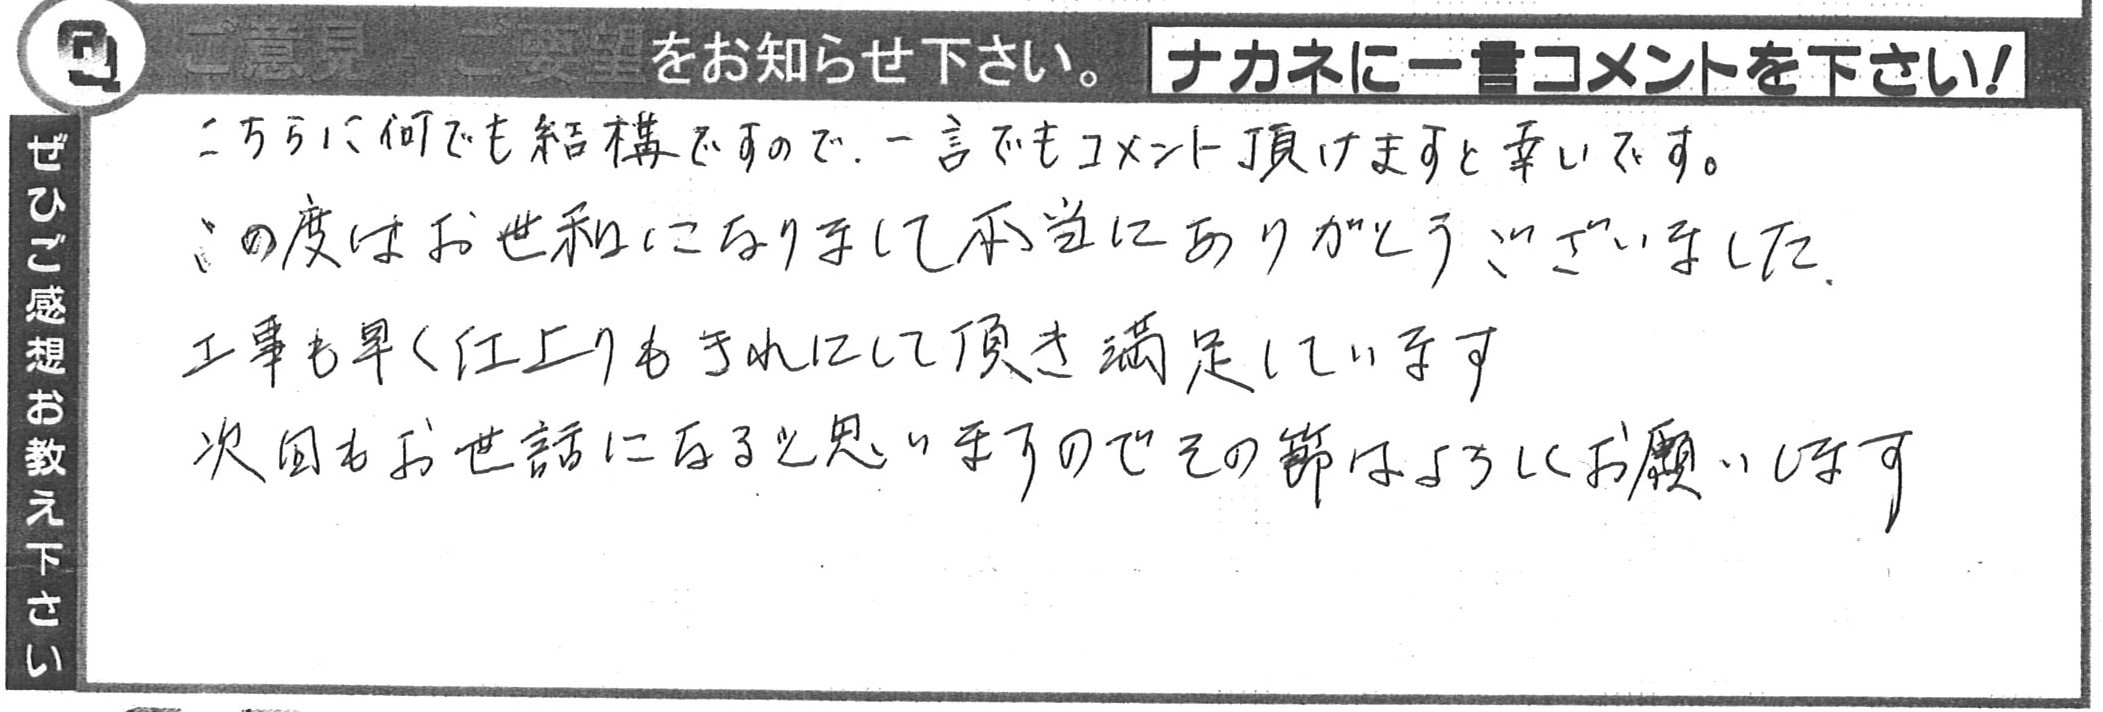 Q ご意見・ご要望をお知らせ下さい。 ナカネに一言コメントを下さい!
ぜひご感想お教え下さい
こちらに何でも結構ですので、一言でもコメント頂けますと幸いです。
この度はお世和になりまして本当にありがとうございました.
工事も早く仕上りもきれにして頂き満足しています
次回もお世話になると思いますのでその節はよろしくお願いします